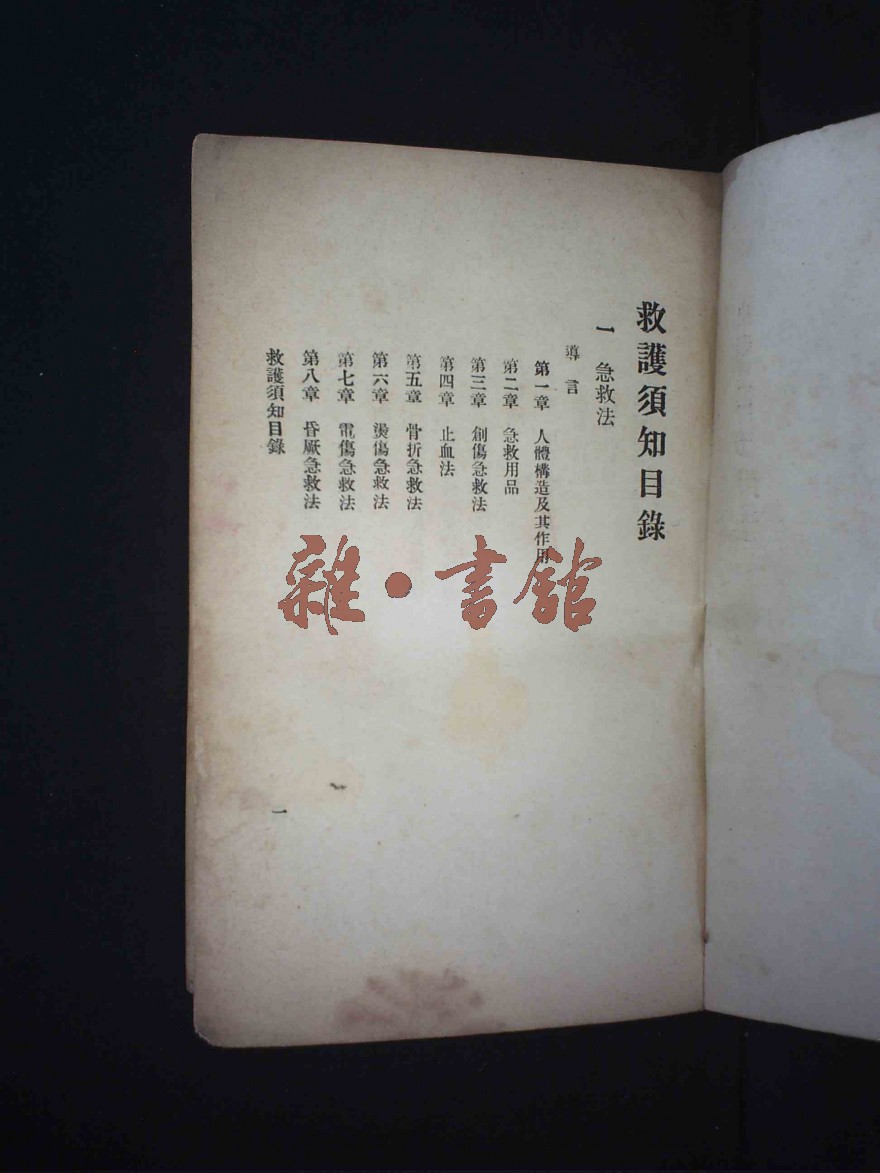 救護須知目錄
一　急救法
導言
第一章　人體構造及其作用
第二章　急救用品
第三章　創傷急救法
第四章　止血法
第五章　骨折急救法
第六章　燙傷急救法
第七章　電傷急救法
第八章　昏厥急救法
救護須知目錄
一
雜·書館